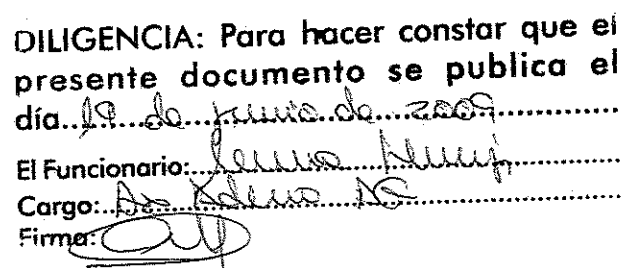 DILIGENCIA: Para hacer constar que el
presente documento se publica el
día..19...de...junio de...2009
El Funcionario:
Cargo:
Firma: